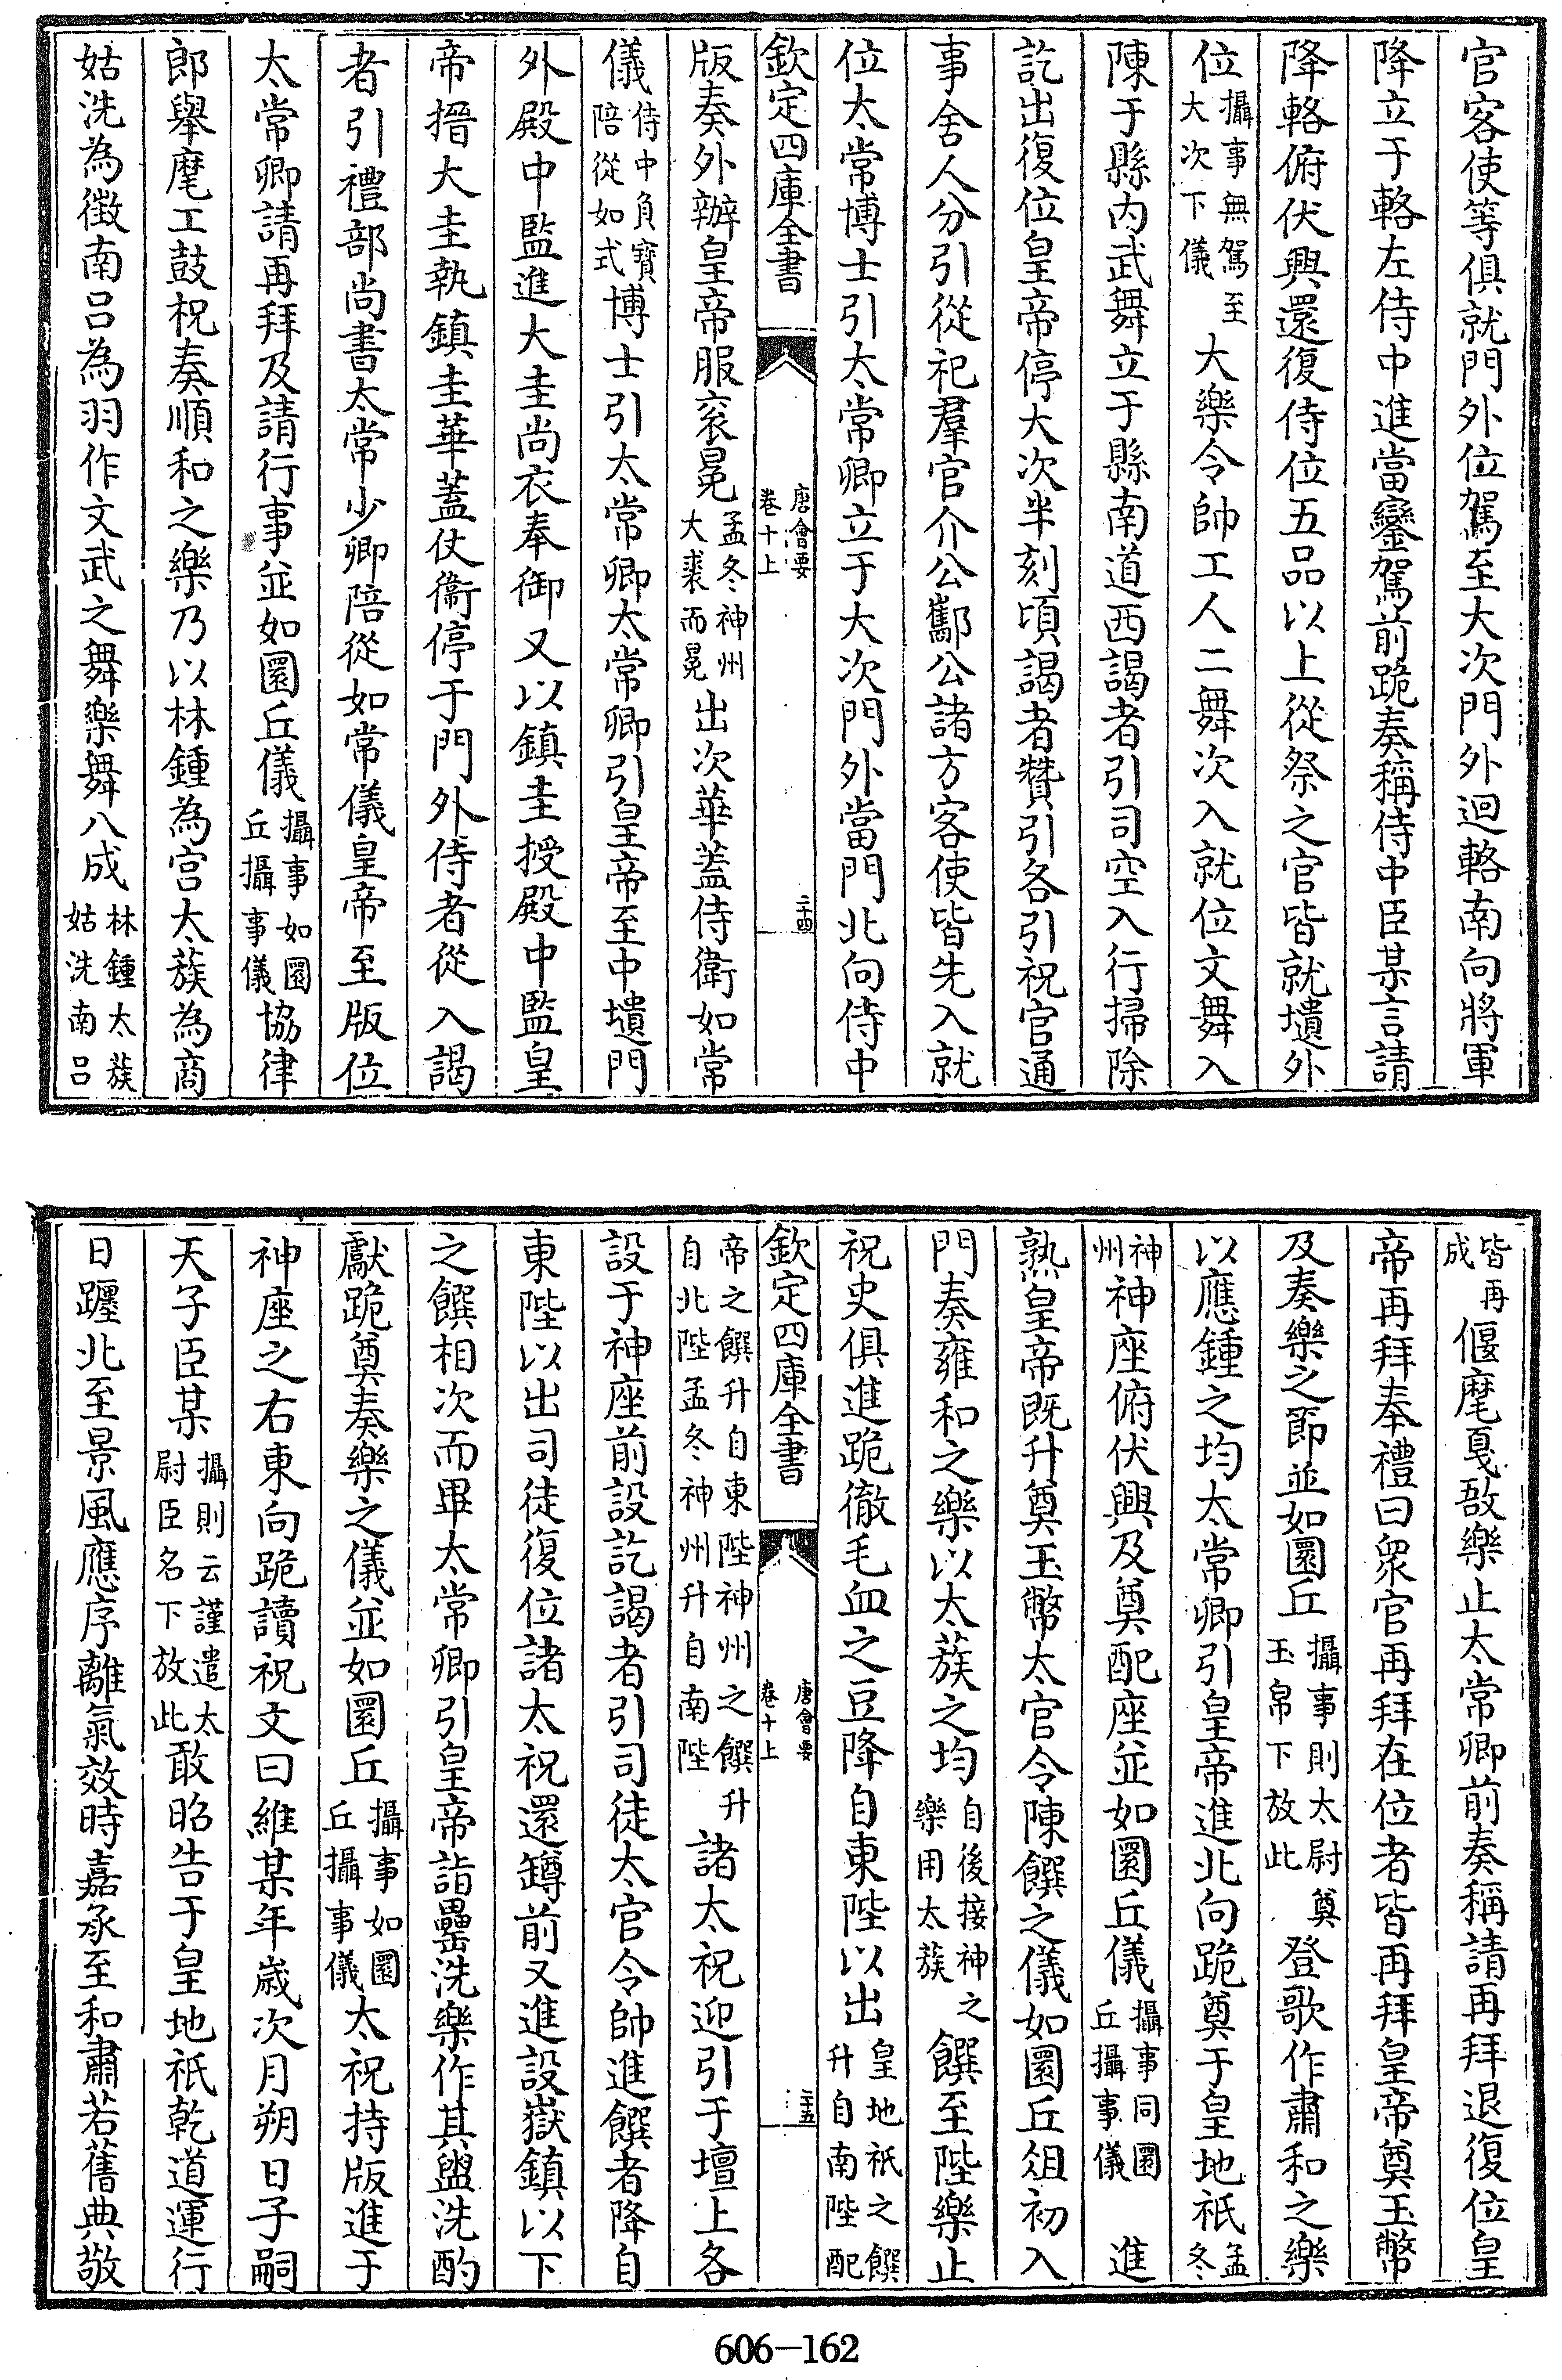 官客使等俱就門外位駕至大次門外迴輅南向將軍
降立于輅左侍中進當鑾駕前跪奏稱侍中臣某言請
降輅俯伏興還復侍位五品以上從祭之官皆就壝外
位攝事無駕至大次下儀大樂令帥工人二舞次入就位文舞入
陳于縣内武舞立于縣南道西謁者引司空入行掃除
訖出復位皇帝停大次半刻頃謁者贊引各引祝官通
事舍人分引從祀羣官介公酅公諸方客使皆先入就
位太常博士引太常卿立于大次門外當門北向侍中
欽定四庫全書
唐會要
卷十上
二十四
版奏外辦皇帝服衮冕孟冬神州大裘而冕出次華蓋侍衛如常
儀侍中負寳陪從如式博士引太常卿太常卿引皇帝至中壝門
外殿中監進大圭尚衣奉御又以鎮圭授殿中監皇
帝搢大圭執鎮圭華蓋仗衞停于門外侍者從入謁
者引禮部尚書太常少卿陪從如常儀皇帝至版位
太常卿請再拜及請行事並如圜丘儀攝事如圜丘攝事儀協律
郎舉麾工鼓柷奏順和之樂乃以林鍾為宫太蔟為商
姑洗為徵南呂為羽作文武之舞樂舞八成林鍾太蔟姑洗南呂
皆再成偃麾戛敔樂止太常卿前奏稱請再拜退復位皇
帝再拜奉禮曰衆官再拜在位者皆再拜皇帝奠玉幣
及奏樂之節並如圜丘攝事則太尉奠玉帛下放此登歌作肅和之樂
以應鍾之均太常卿引皇帝進北向跪奠于皇地祇孟冬
神州神座俯伏興及奠配座並如圜丘儀攝事同圜丘攝事儀進
熟皇帝既升奠玉幣太官令陳饌之儀如圜丘俎初入
門奏雍和之樂以太蔟之均自後接神之樂用太蔟饌至陛樂止
祝史俱進跪徹毛血之豆降自東陛以出皇地祇之饌升自南陛配
欽定四庫全書
唐會要
卷十上
二十五
帝之饌升自東陛神州之饌升自北陛孟冬神州升自南陛諸太祝迎引于壇上各
設于神座前設訖謁者引司徒太官令帥進饌者降自
東陛以出司徒復位諸太祝還罇前又進設嶽鎮以下
之饌相次而畢太常卿引皇帝詣罍洗樂作其盥洗酌
獻跪奠奏樂之儀並如圜丘攝事如圜丘攝事儀太祝持版進于
神座之右東向跪讀祝文曰維某年歲次月朔日子嗣
天子臣某攝則云謹遣太尉臣名下放此敢昭告于皇地祇乾道運行
日躔北至景風應序離氣效時嘉承至和肅若舊典敬
606-162